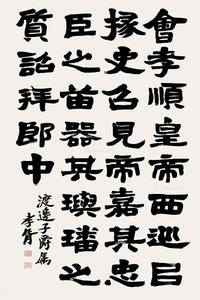 會孝順皇帝西巡㠯
掾史召見帝嘉其忠
臣之苗器其璵璠之
質詔拜郎中
渡邊子爵屬
李